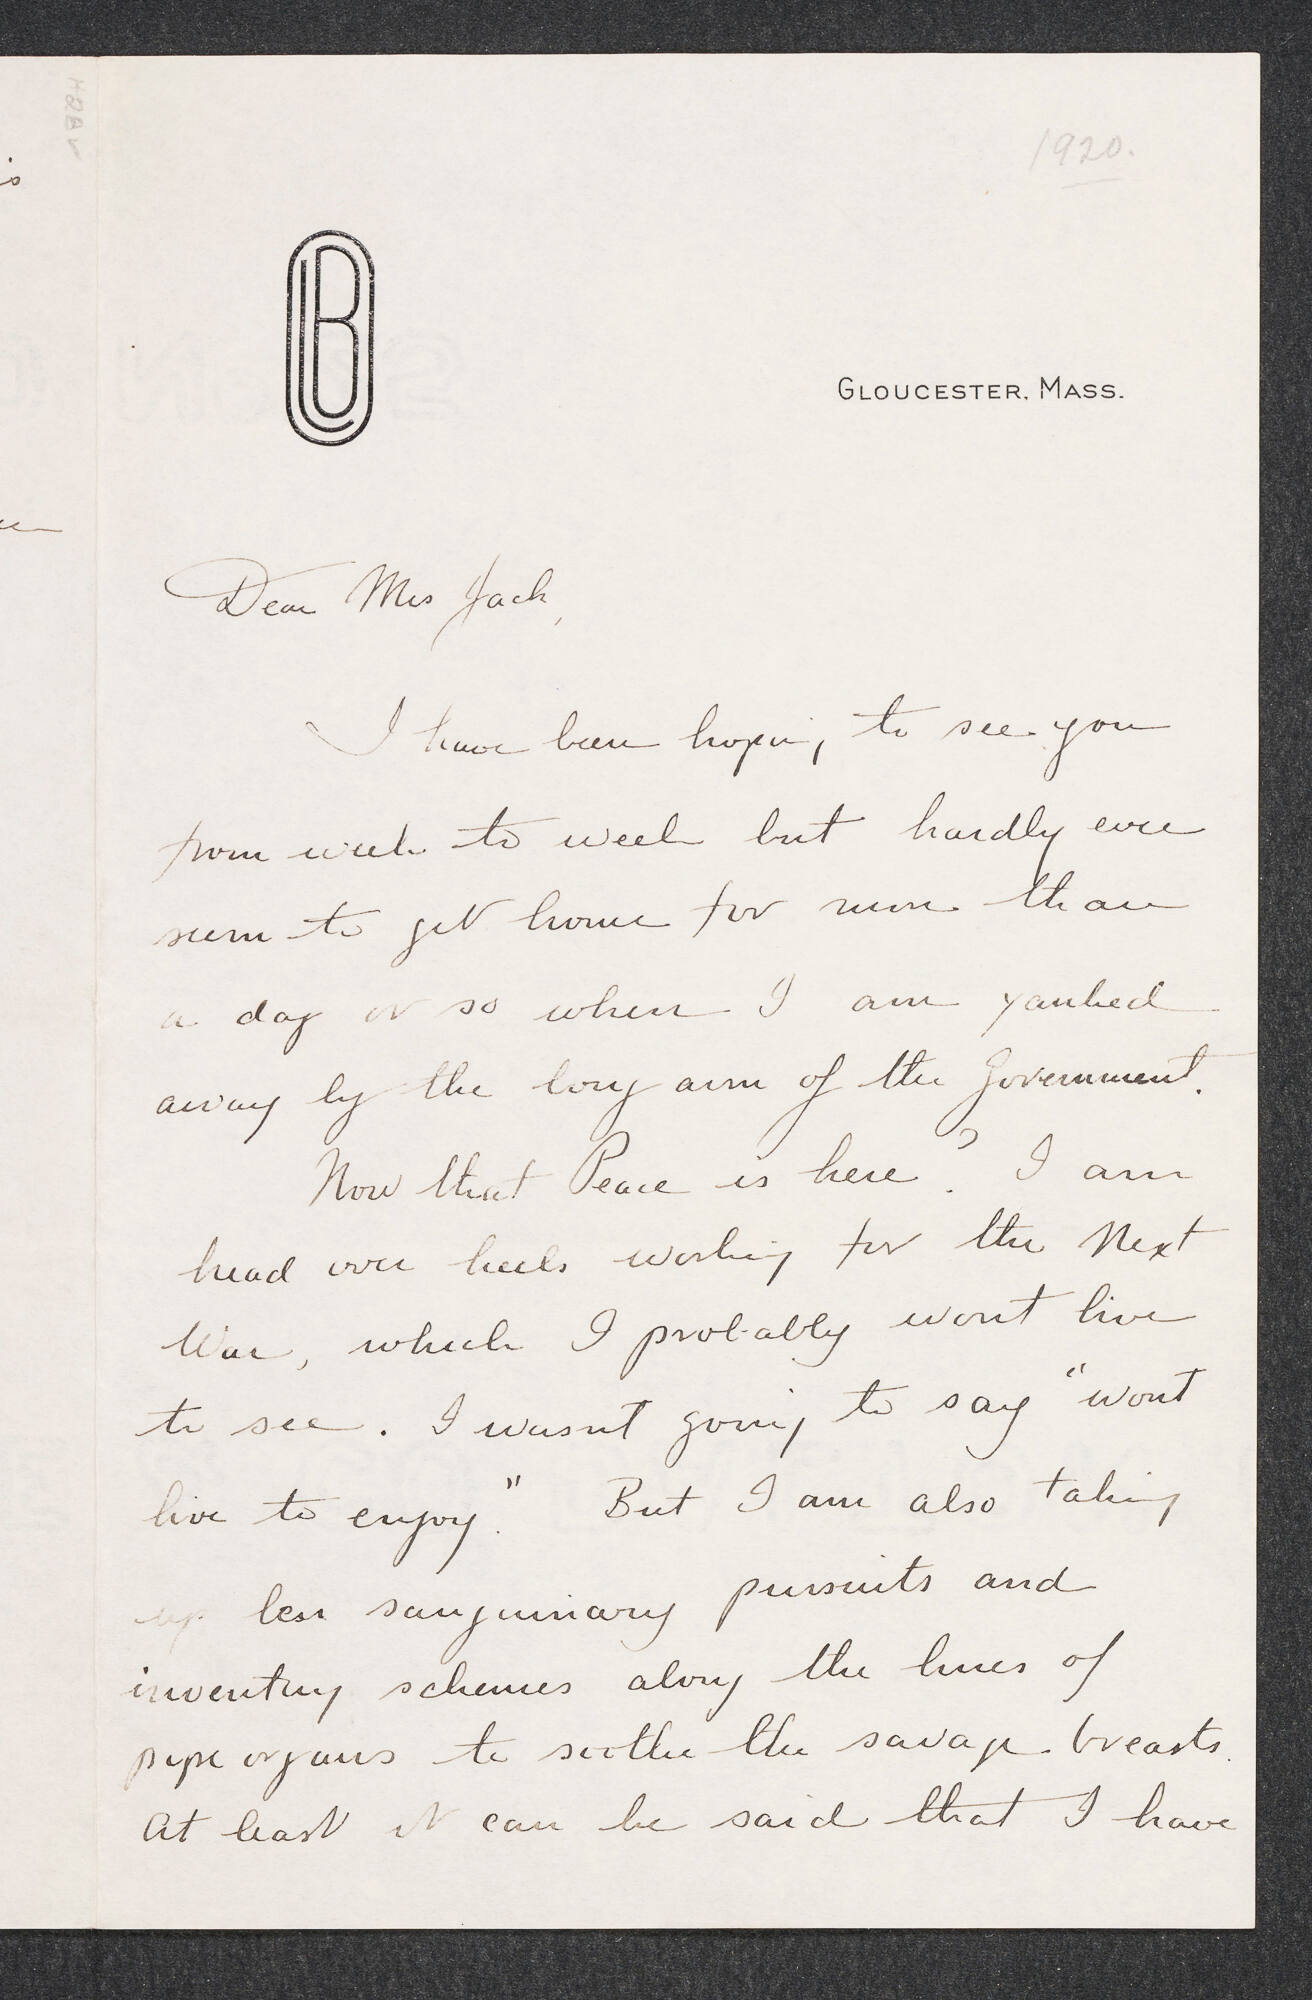 1920.
GLOUCESTER, MASS.
Dear Mrs Jack,
I have been hoping to see you
from week to week but hardly ever
seem to get home for more than
a day or so when I am yanked
away by the long arm of the Government.
Now that Peace is here? I am
head over heels working for the Next
War, which I probably wont live
to see. I wasnt going to say "wont
live to enjoy." But I am also taking
up less sanguinary pursuits and
inventing schemes along the lines of
pipe organs to soothe the savage breasts.
At least it can be said that I have